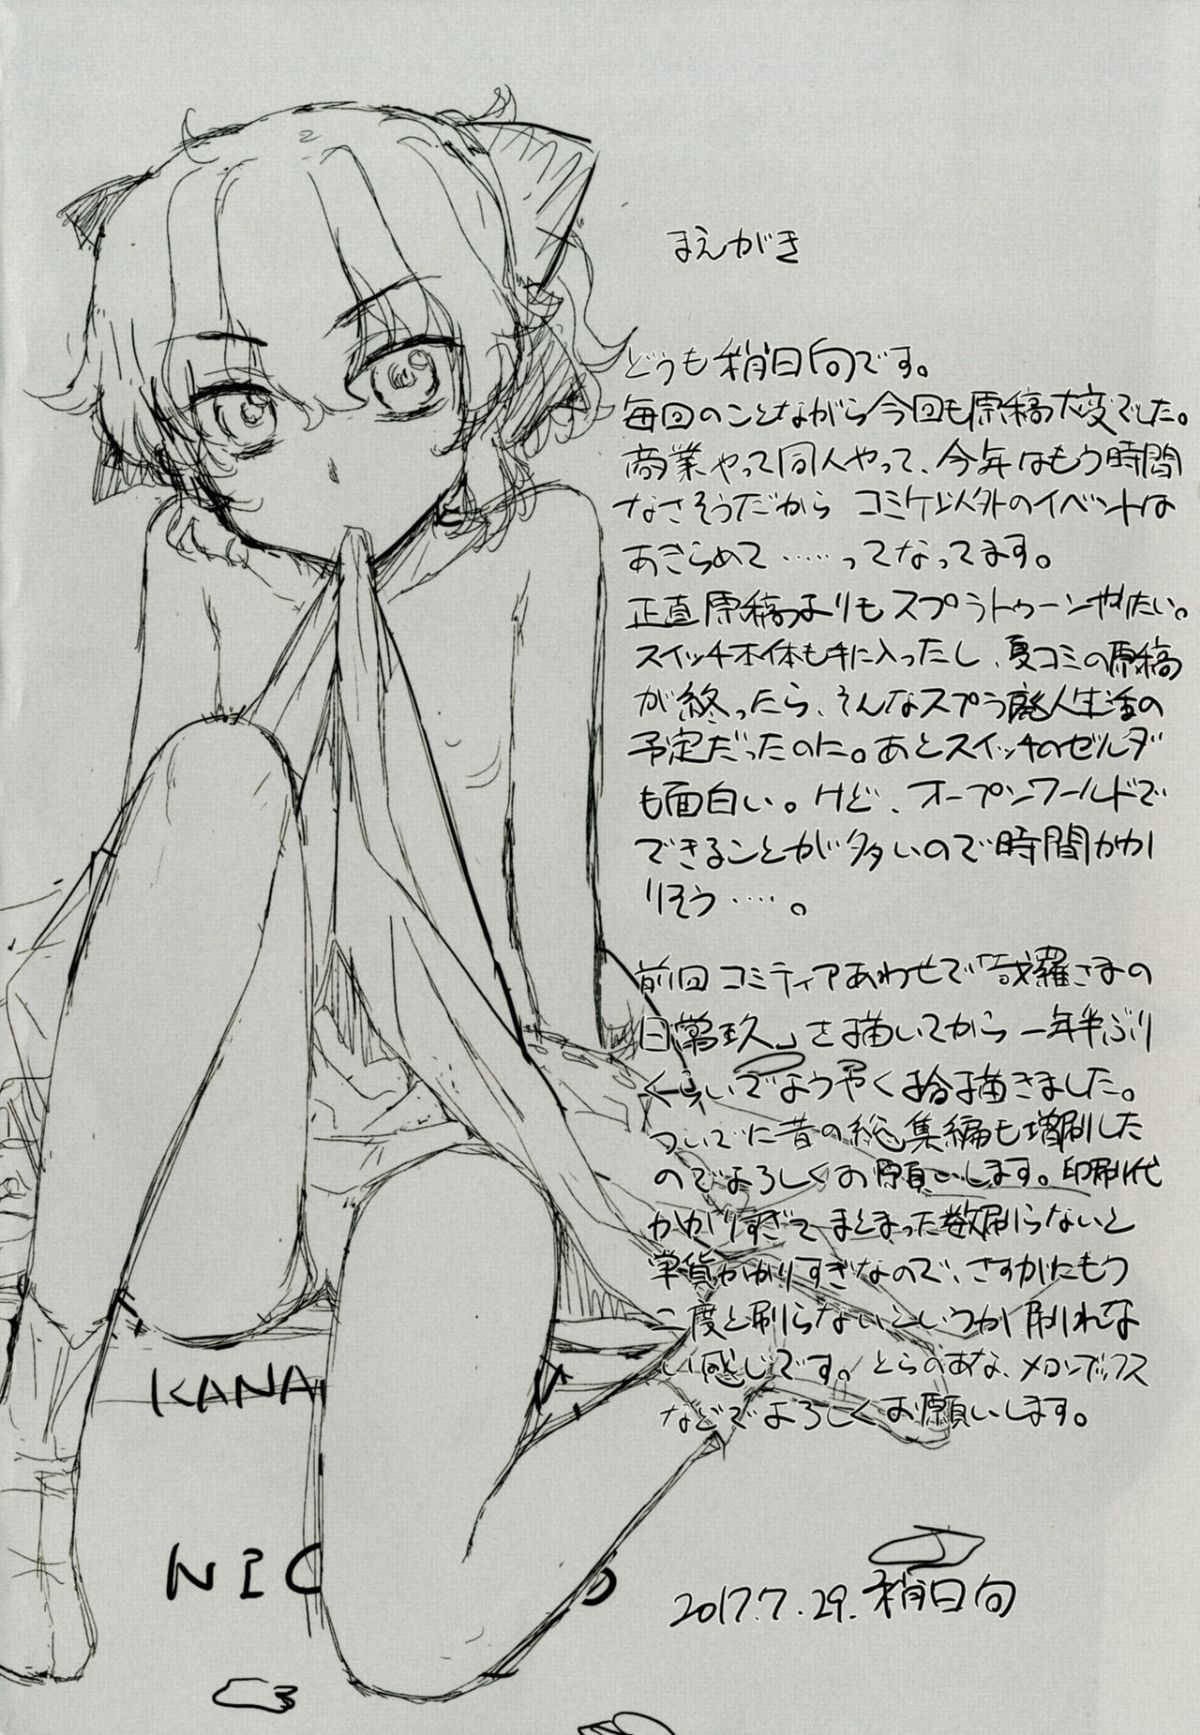 まえがき
どうも稍日向です。
毎回のことながら今回も原稿大変でした。
商業やって同人やって、今年はもう時間
なさそうだから コミケ以外のイベントは
あきらめて……ってなってます。
正直原稿よりもスプラトゥーンやりたい。
スイッチ本体も手に入ったし、夏コミの原稿
が終ったら、そんなスプラ廃人生活の
予定だったのに。あとスイッチのゼルダ
も面白い。けど、オープンワールドで
できることが多いので時間かか
りそう……。
前回コミティアあわせで「哉羅さまの
日常玖」を描いてから一年半ぶり
くらいでようやく拾描きました。
ついでに昔の総集編も増刷した
のでよろしくお願いします。印刷代
かかりすぎてまとまった数刷らないと
単価かかりすぎなので、さすがにもう
二度と刷らないというか刷れな
い感じです。とらのあな、メロンブックス
などでよろしくお願いします。
KANA
NIC
2017.7.29.稍日向